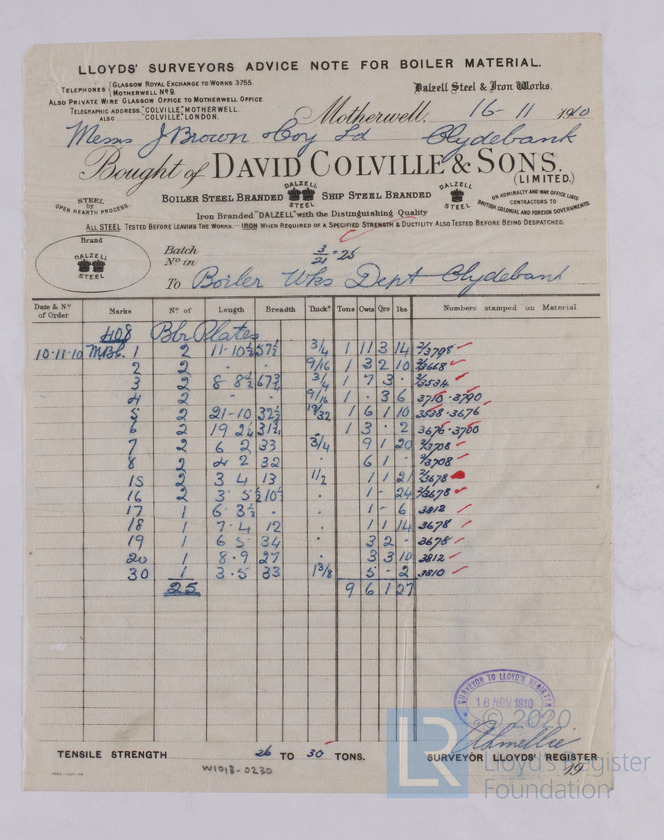 LLOYDS' SURVEYORS ADVICE NOTE FOR BOILER MATERIAL.
TELEPHONES { GLASGOW ROYAL EXCHANGE TO WORKS 3755.
MOTHERWELL Nº 9.
ALSO PRIVATE WIRE GLASGOW OFFICE TO MOTHERWELL OFFICE.
TELEGRAPHIC ADDRESS, "COLVILLE", MOTHERWELL.
ALSO "COLVILLE", LONDON.
Dalzell Steel & Iron Works.
Motherwell, 16-11 1910
Messrs J Brown & Coy Ld Clydebank
Bought of DAVID COLVILLE & SONS.
(LIMITED.)
STEEL by OPEN HEARTH PROCESS.
BOILER STEEL BRANDED DALZELL STEEL SHIP STEEL BRANDED DALZELL STEEL
ON ADMIRALTY AND WAR OFFICE LISTS
CONTRACTORS TO
BRITISH COLONIAL AND FOREIGN GOVERNMENTS.
Iron Branded "DALZELL" with the Distinguishing Quality
ALL STEEL TESTED BEFORE LEAVING THE WORKS. IRON WHEN REQUIRED OF A SPECIFIED STRENGTH & DUCTILITY ALSO TESTED BEFORE BEING DESPATCHED.
Brand
DALZELL STEEL
Batch
Nº in 3/21 = 25
To Boiler Wks Dept Clydebank
Date & Nº of Order Marks Nº of Length Breadth Thickˢ Tons Cwts Qrs lbs Numbers stamped on Material
408 Blr Plates
10-11-10 1 2 11-10½ 57½ 3/4 1 11 3 14 2/3798
2 2 . . 9/16 1 3 2 10 2/3668
3 2 8-8½ 67¾ 3/4 1 7 3 - 2/3534
4 2 - - 9/16 1 . 3 6 3710 . 3790
5 2 21-10 32½ 19/32 1 6 1 10 3558 . 3676
6 2 19 2¼ 31¼ . 1 3 . 2 3676 . 3700
7 2 6 2 33 3/4 9 1 20 2/3708
8 2 4 2 32 . 6 1 . 2/3708
15 2 3 4 13 1/2 1 1 21 2/3678
16 2 3 5½ 10½ . 1 - 24 2/3678
17 1 6 3½ . . 1 - 6 3812
18 1 7.4 12 . 1 1 14 3678
19 1 6 5 34 . 3 2 . 3678
20 1 8.9 27 . 3 3 10 3812
30 1 3.5 33 1 3/8 5 . 2 3810
25 9 6 1 27
SURVEYOR TO LLOYD'S REGISTER
16 NOV 1910
© 2020
TENSILE STRENGTH 26 TO 30 TONS.
SURVEYOR LLOYDS' REGISTER
19
W1018-0230
LR
Lloyd's Register
Foundation